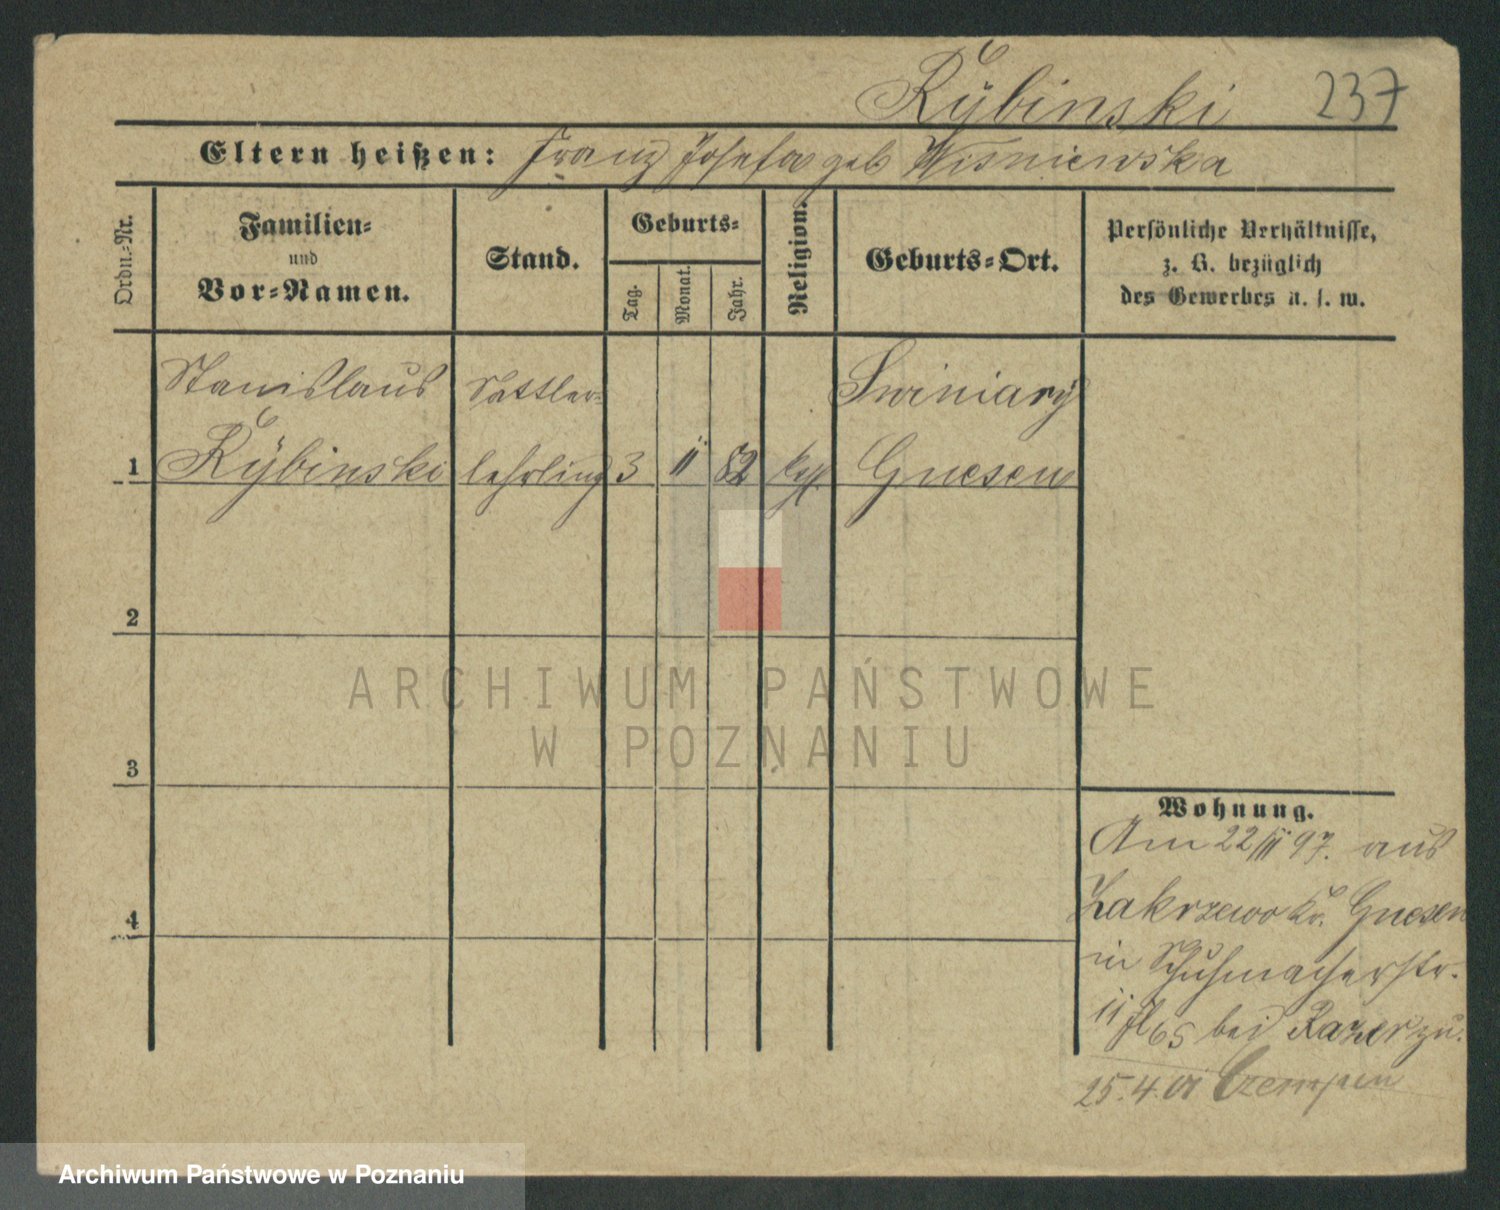 Rÿbinski 237
Eltern heißen: Franz Josefa geb Wisniewska
Ordn.-Nr.
Familien-
und
Vor-Namen.
Stand.
Geburts-
Tag.
Monat.
Jahr.
Religion.
Geburts-Ort.
Persönliche Verhältnisse,
z. B. bezüglich
des Gewerbes u. s. w.
Stanislaus Sattler- Swiniarÿ
1 Rÿbinski lehrling 3 11 82 Gnesen
2
3
4
Wohnung.
Am 22/ 97. aus
Zakrzewo Kr. Gnesen
in Schuhmacherstr.
11 65 bei zu.
25.4.01
ARCHIWUM PAŃSTWOWE
W POZNANIU
Archiwum Państwowe w Poznaniu